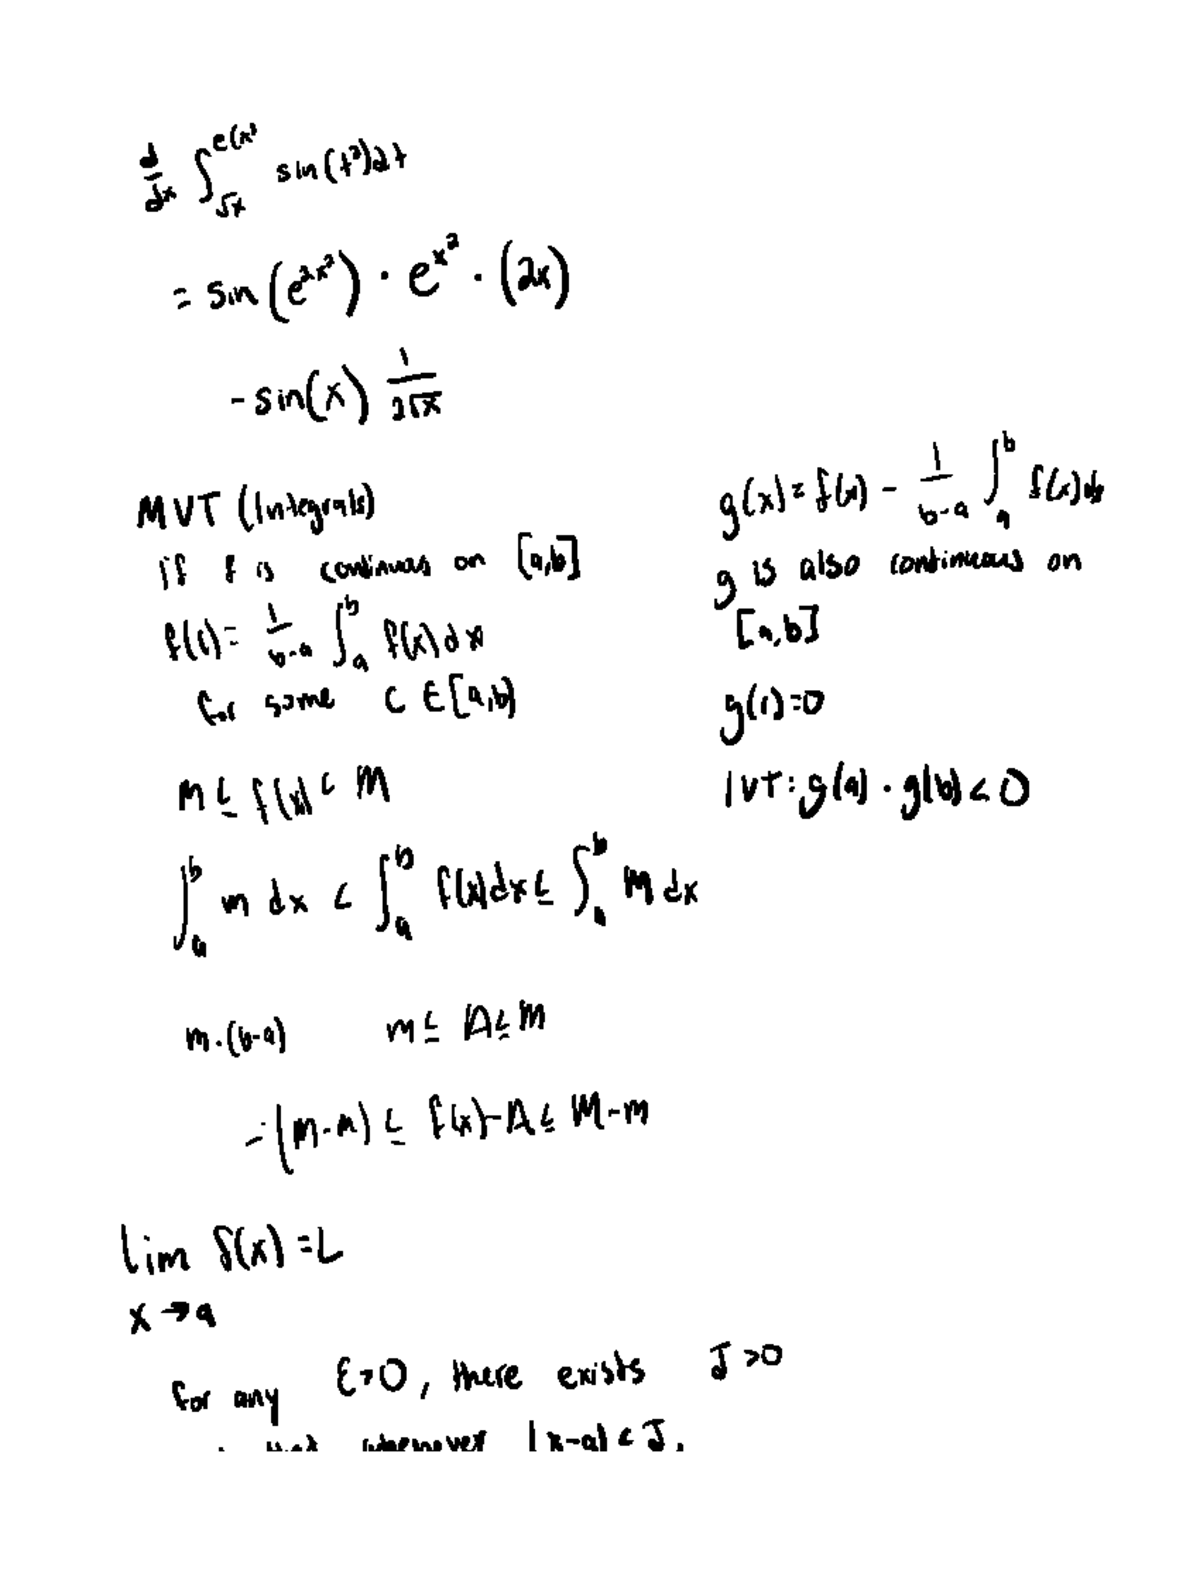 d/dx ∫_√x^e(x² sin(t²)dt
= sin(e^2x²) · e^x² · (2x)
- sin(x) 1/2√x
MVT (Integrals)
if f is continuous on [a,b]
f(c) = 1/b-a ∫_a^b f(x)dx
for some c ∈ [a,b]
m ≤ f(x) < M
∫_a^b m dx < ∫_a^b f(x)dx ≤ ∫_a^b M dx
m·(b-a) m ≤ A ≤ M
-(M-m) ≤ f(x)-A ≤ M-m
g(x) = f(x) - 1/b-a ∫_a^b f(x)dx
g is also continuous on
[a,b]
g(c)=0
IVT: g(a) · g(b) < 0
lim f(x) = L
x→a
for any ε>0, there exists J>0
that whenever |x-a| < J,